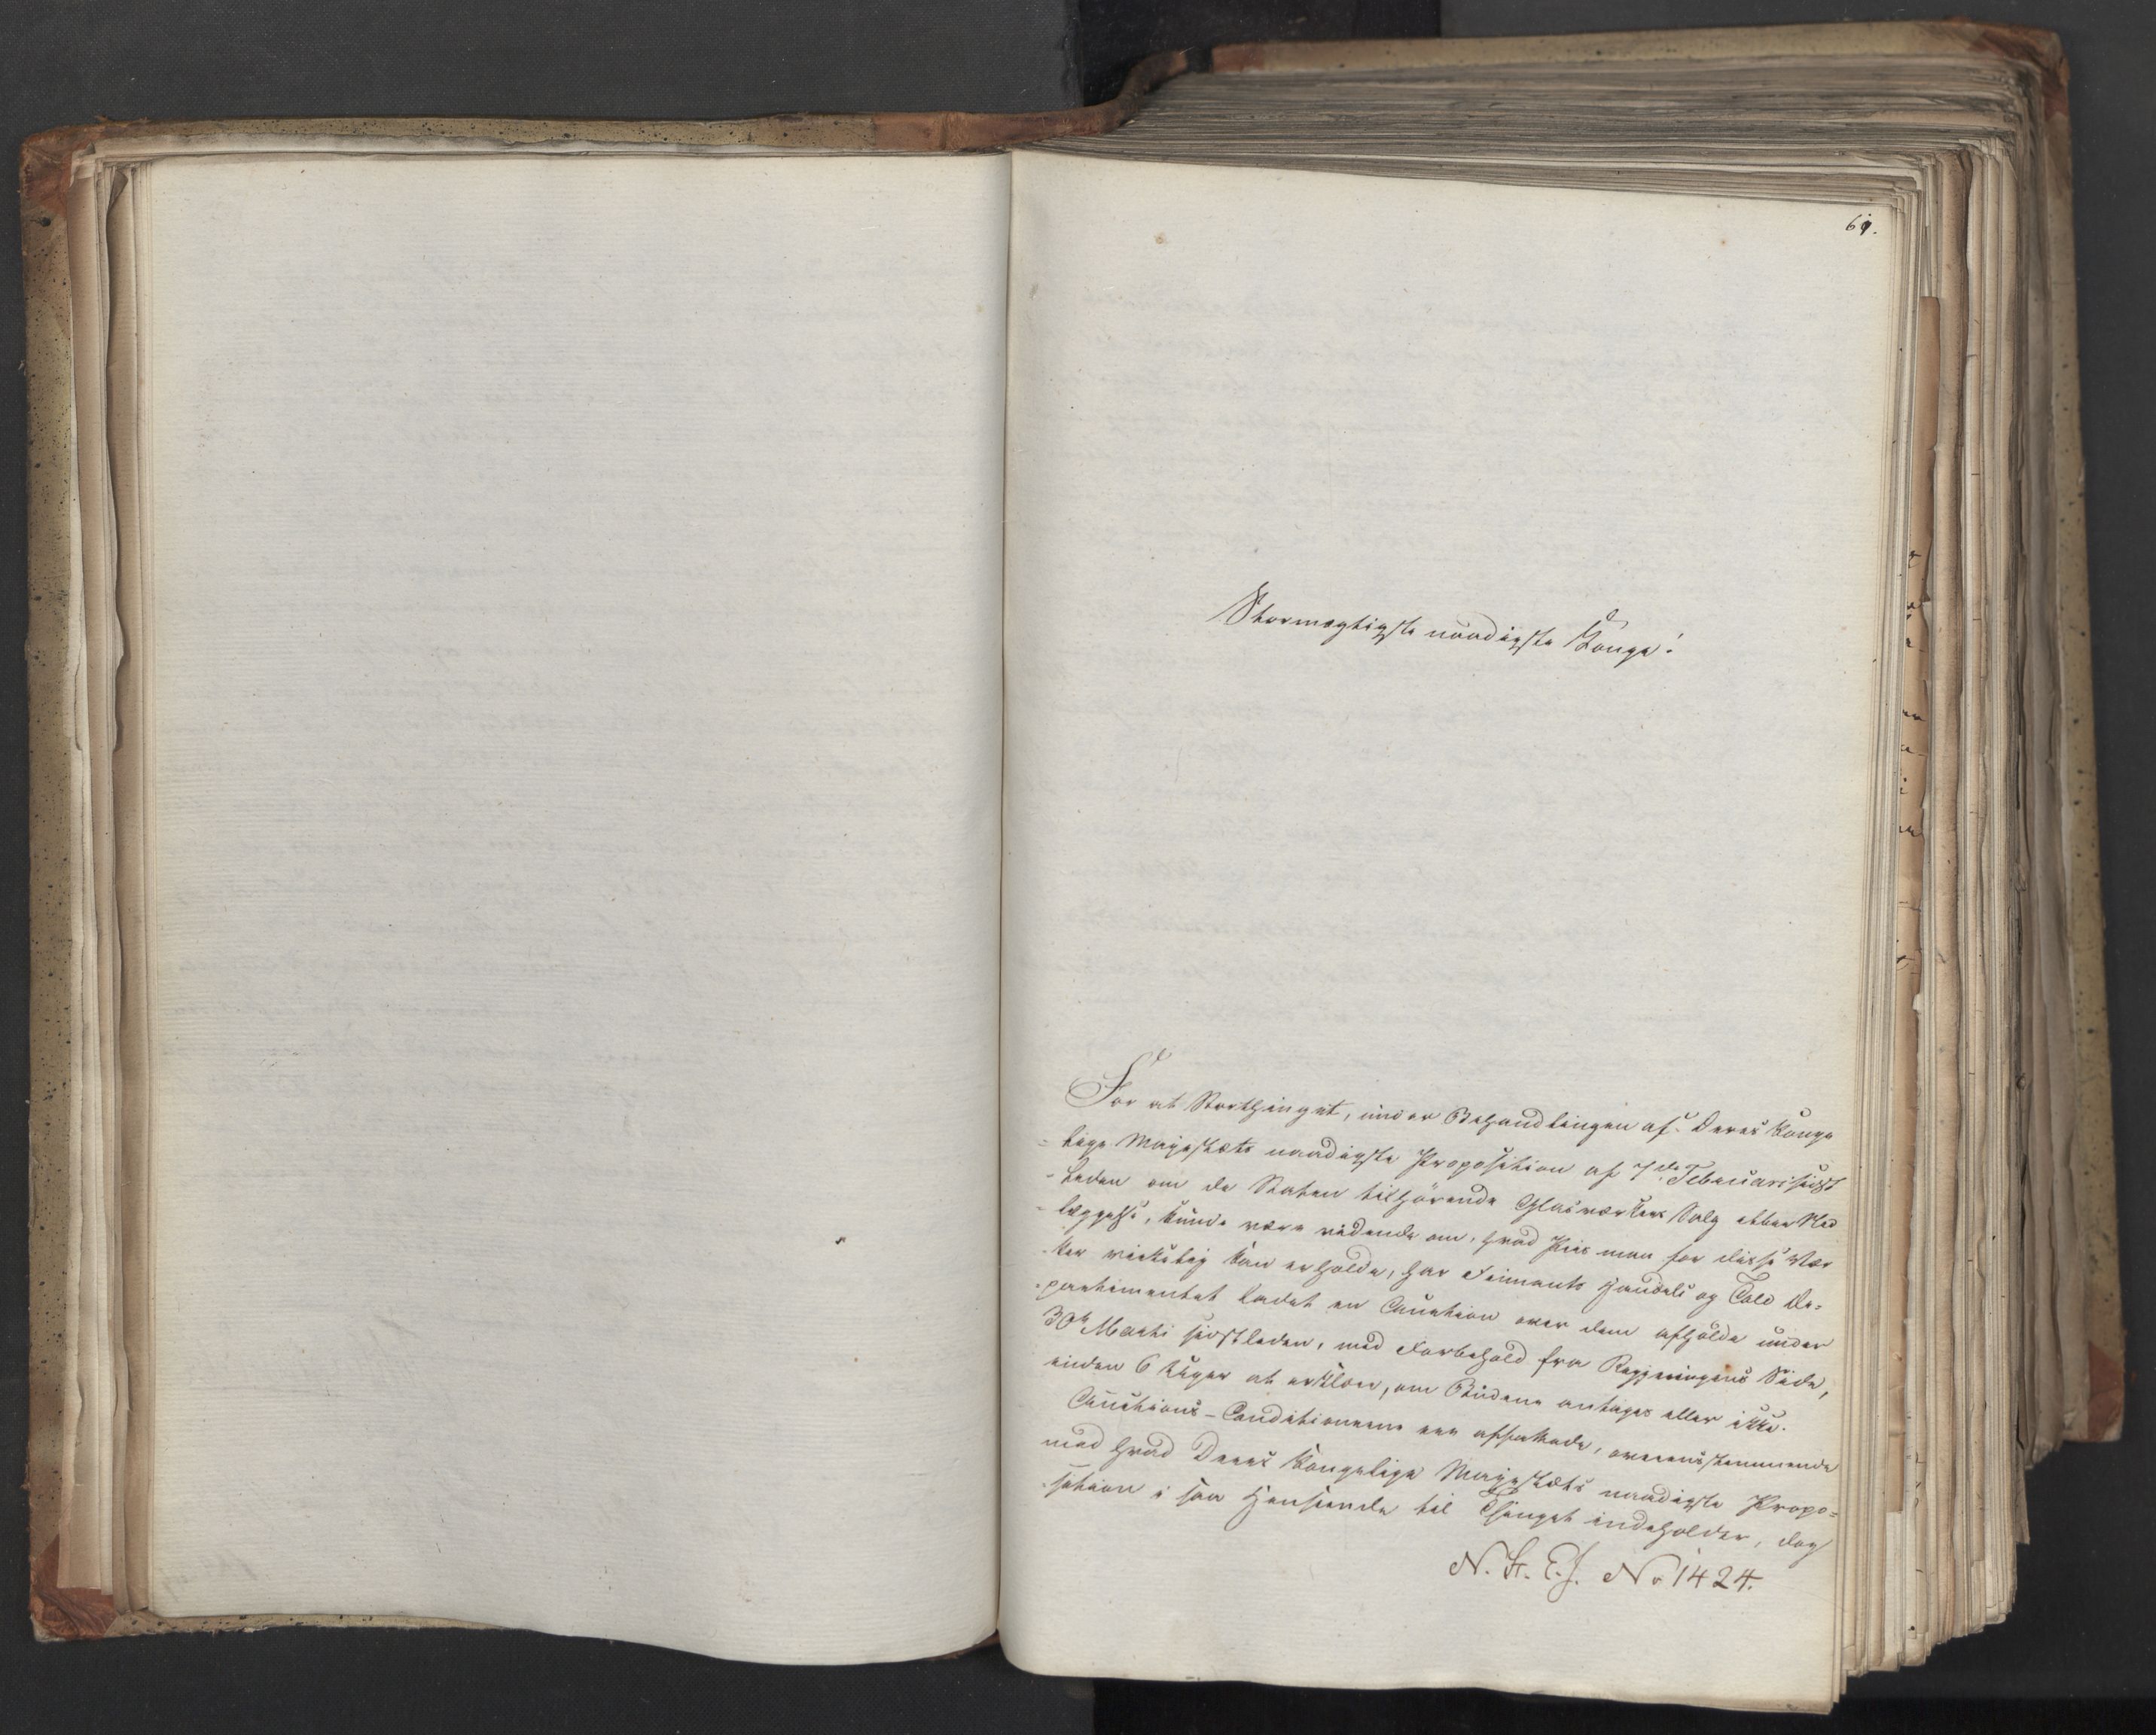 61.
Stormægtigste naadigste Konge!
For at Storthinget, under Behandlingen af Deres Konge
=lige Majestæts naadigste Proposition af 7de Februari sidst
=leden om de Staten tilhörende Glasværkers Salg eller Ned
=læggelse, kunde være vidende om, hvad Priis man for disse Vær
=ker virkelig kan erholde, har Finants Handels og Told De=
=partementet ladet en Auction over dem afholde under
30te Marti sidstleden, med Forbehold fra Regjeringens Side,
inden 6 Uger at erklære, om Budene antages eller ikke.
Auctions-Conditionerne ere affattede, overensstemmende
med hvad Deres Kongelige Majestæts naadigste Propo=
=sition i saa Henseende til Thinget indeholder, dog
N. St. E. J. No 1424.